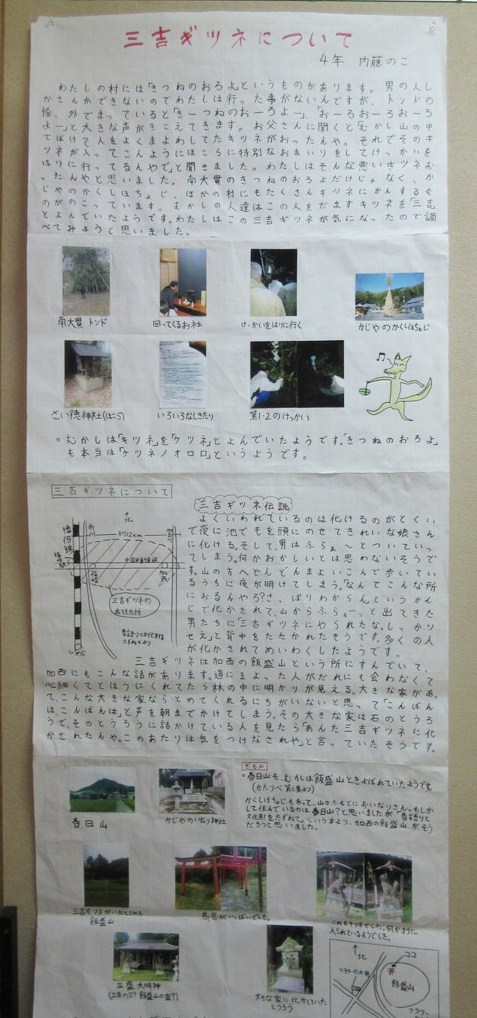 三吉ギツネについて
4年 内藤のこ
わたしの村には「きつねのおろよ」というものがあります。男の人し
かさんかできないのでわたしは行った事がないんですが、トンドの
後、外でまっていると「きーつねのおーろよー」、「おーるおーろおーろ
よー」と大きな声がきこえてきます。お父さんに聞くと「むかし山の中
でばけて人をよくまよわしてたキツネがおったんや。それでそのキ
ツネが入ってこんようにほこらに特別なおまいりをしてけっかいを
はりに行ってるんやで」と聞きました。わたしはそんな悪いキツネがお
ったんやと思いました。南大貫のきつねのおろよだけじゃなく、か
じやのかくしほちょじ、ほかの村にもたくさんキツネにかんするも
のがのこっています。むかしの人達はこの人をだますキツネを「三吉」
とよんでいたようです。わたしはこの三吉ギツネが気になったので調
べてみようと思いました。
南大貫 トンド
回ってくるお社
けっかいをはりに行く
かじやのかくしほちょじ
さい徳神社(ほこら)
いろいろなしきたり
第1・2のけっかい
○むかしは「キツネ」を「ケツネ」とよんでいたようです。「きつねのおろよ」
も本当は「ケツネノオロロ」というようです。
三吉ギツネについて
北
約12km
中国自動車道
三吉ギツネの
三吉ギツネ伝説
よくいわれているのは化けるのがとくい
で夜に池でもを頭にのせてきれいな娘さん
に化ける。そして、男はふらぁ〜とついていっ
てしまう。何かおかしいとは思わないそうで
す。山の方へどんどんまよいこんで歩いてい
るうちに夜が明けてしまう。「なんでこんな所
におるんやろ?さっぱりわからん」というかん
じで化かされて、山からふらぁ〜っと出てきた
男たちに「三吉ギツネにやられたな。しっかり
せえ」と背中をたたかれたそうです。多くの人
が化かされてめいわくしたようです。
三吉ギツネは加西の飯盛山という所にすんでいて、
加西にもこんな話があります。道にまよった人がだれにも会わなくて
心細くてとほうにくれてたら林の中に明かりが見える。大きな家があっ
て、こんな大きな家ならとめてくれるにちがいないと思って「こんばん
は、こんばんは」と声を朝までかけてしまう。その大きな家は石のとうろ
うで、そのとうろうに話かけている人を見たら「あんた三吉ギツネに化
かされたんや。このあたりは気をつけなされや」と言っていたそうです。
春日山
かじやの稲り神社
ぎもん
・春日山も、むかしは飯盛山とよばれていたようです。
三吉ギツネがいたとされる
飯盛山
鳥居がいっぱいでした。
三盛大明神
大きな家に化かしていた
とうろう
北
ココ
飯盛山
フラワー